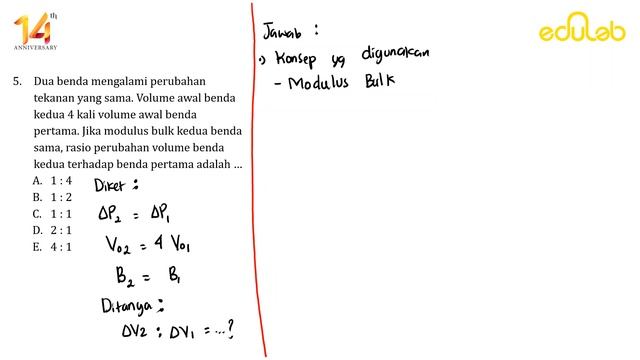 14th
ANNIVERSARY
edulab
5. Dua benda mengalami perubahan
tekanan yang sama. Volume awal benda
kedua 4 kali volume awal benda
pertama. Jika modulus bulk kedua benda
sama, rasio perubahan volume benda
kedua terhadap benda pertama adalah ...
A. 1 : 4
B. 1 : 2
C. 1 : 1
D. 2 : 1
E. 4 : 1
Diket :
ΔP₂ = ΔP₁
V₀₂ = 4 V₀₁
B₂ = B₁
Ditanya :
ΔV2 : ΔV₁ = ...?
Jawab :
•) Konsep yg digunakan
- Modulus Bulk